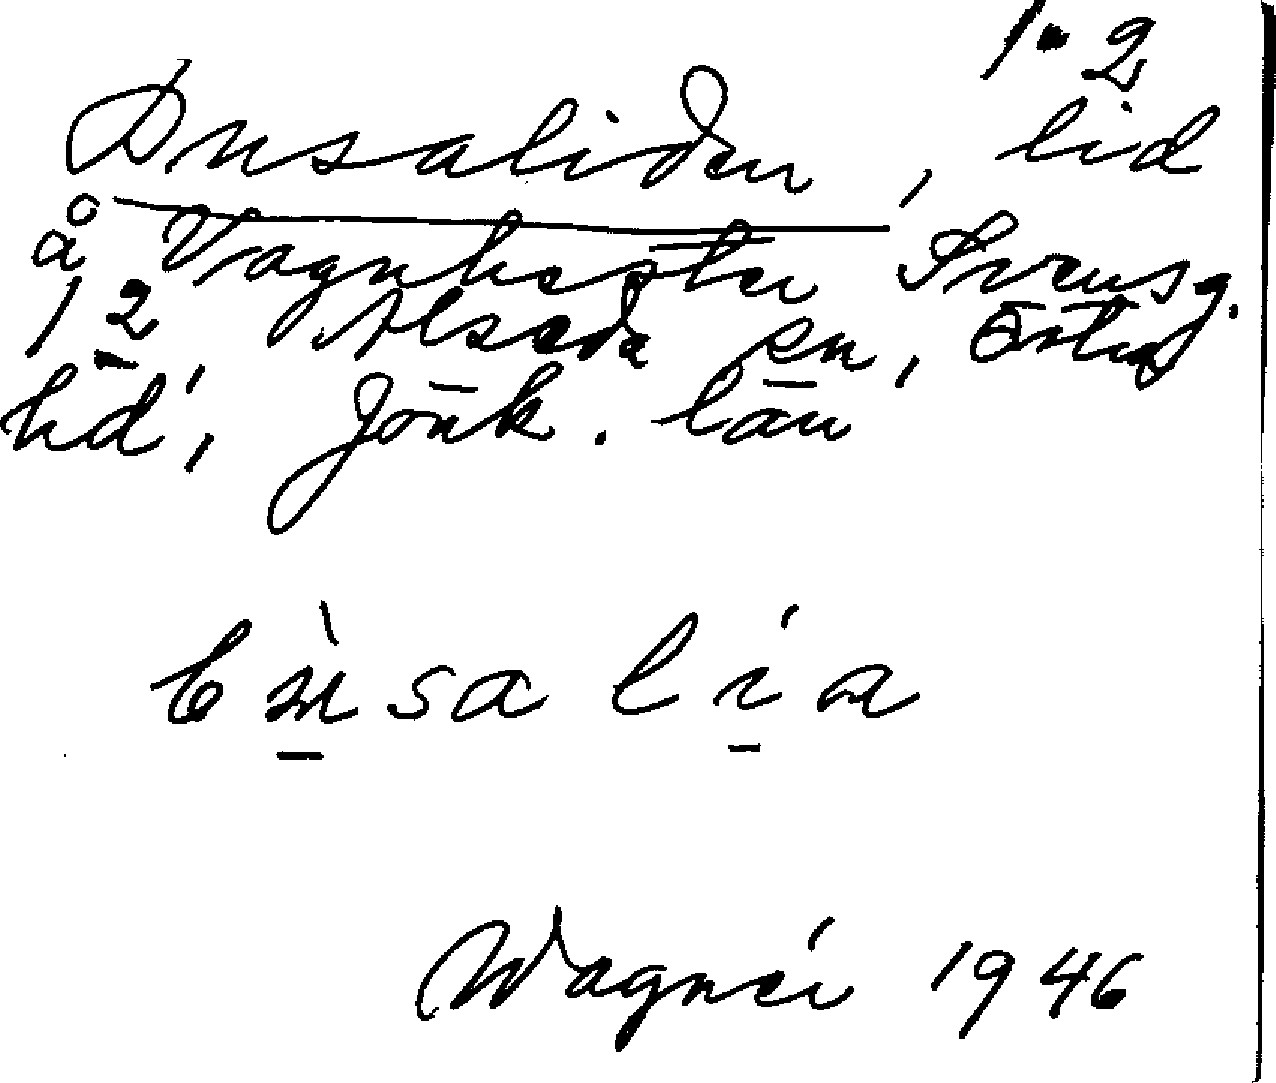 1-2
Dusaliden, lid
å Vagnhester Svensg.
1 2, Alseda sn, Östra
hd, Jönk. län
lia
Wagnér 1946